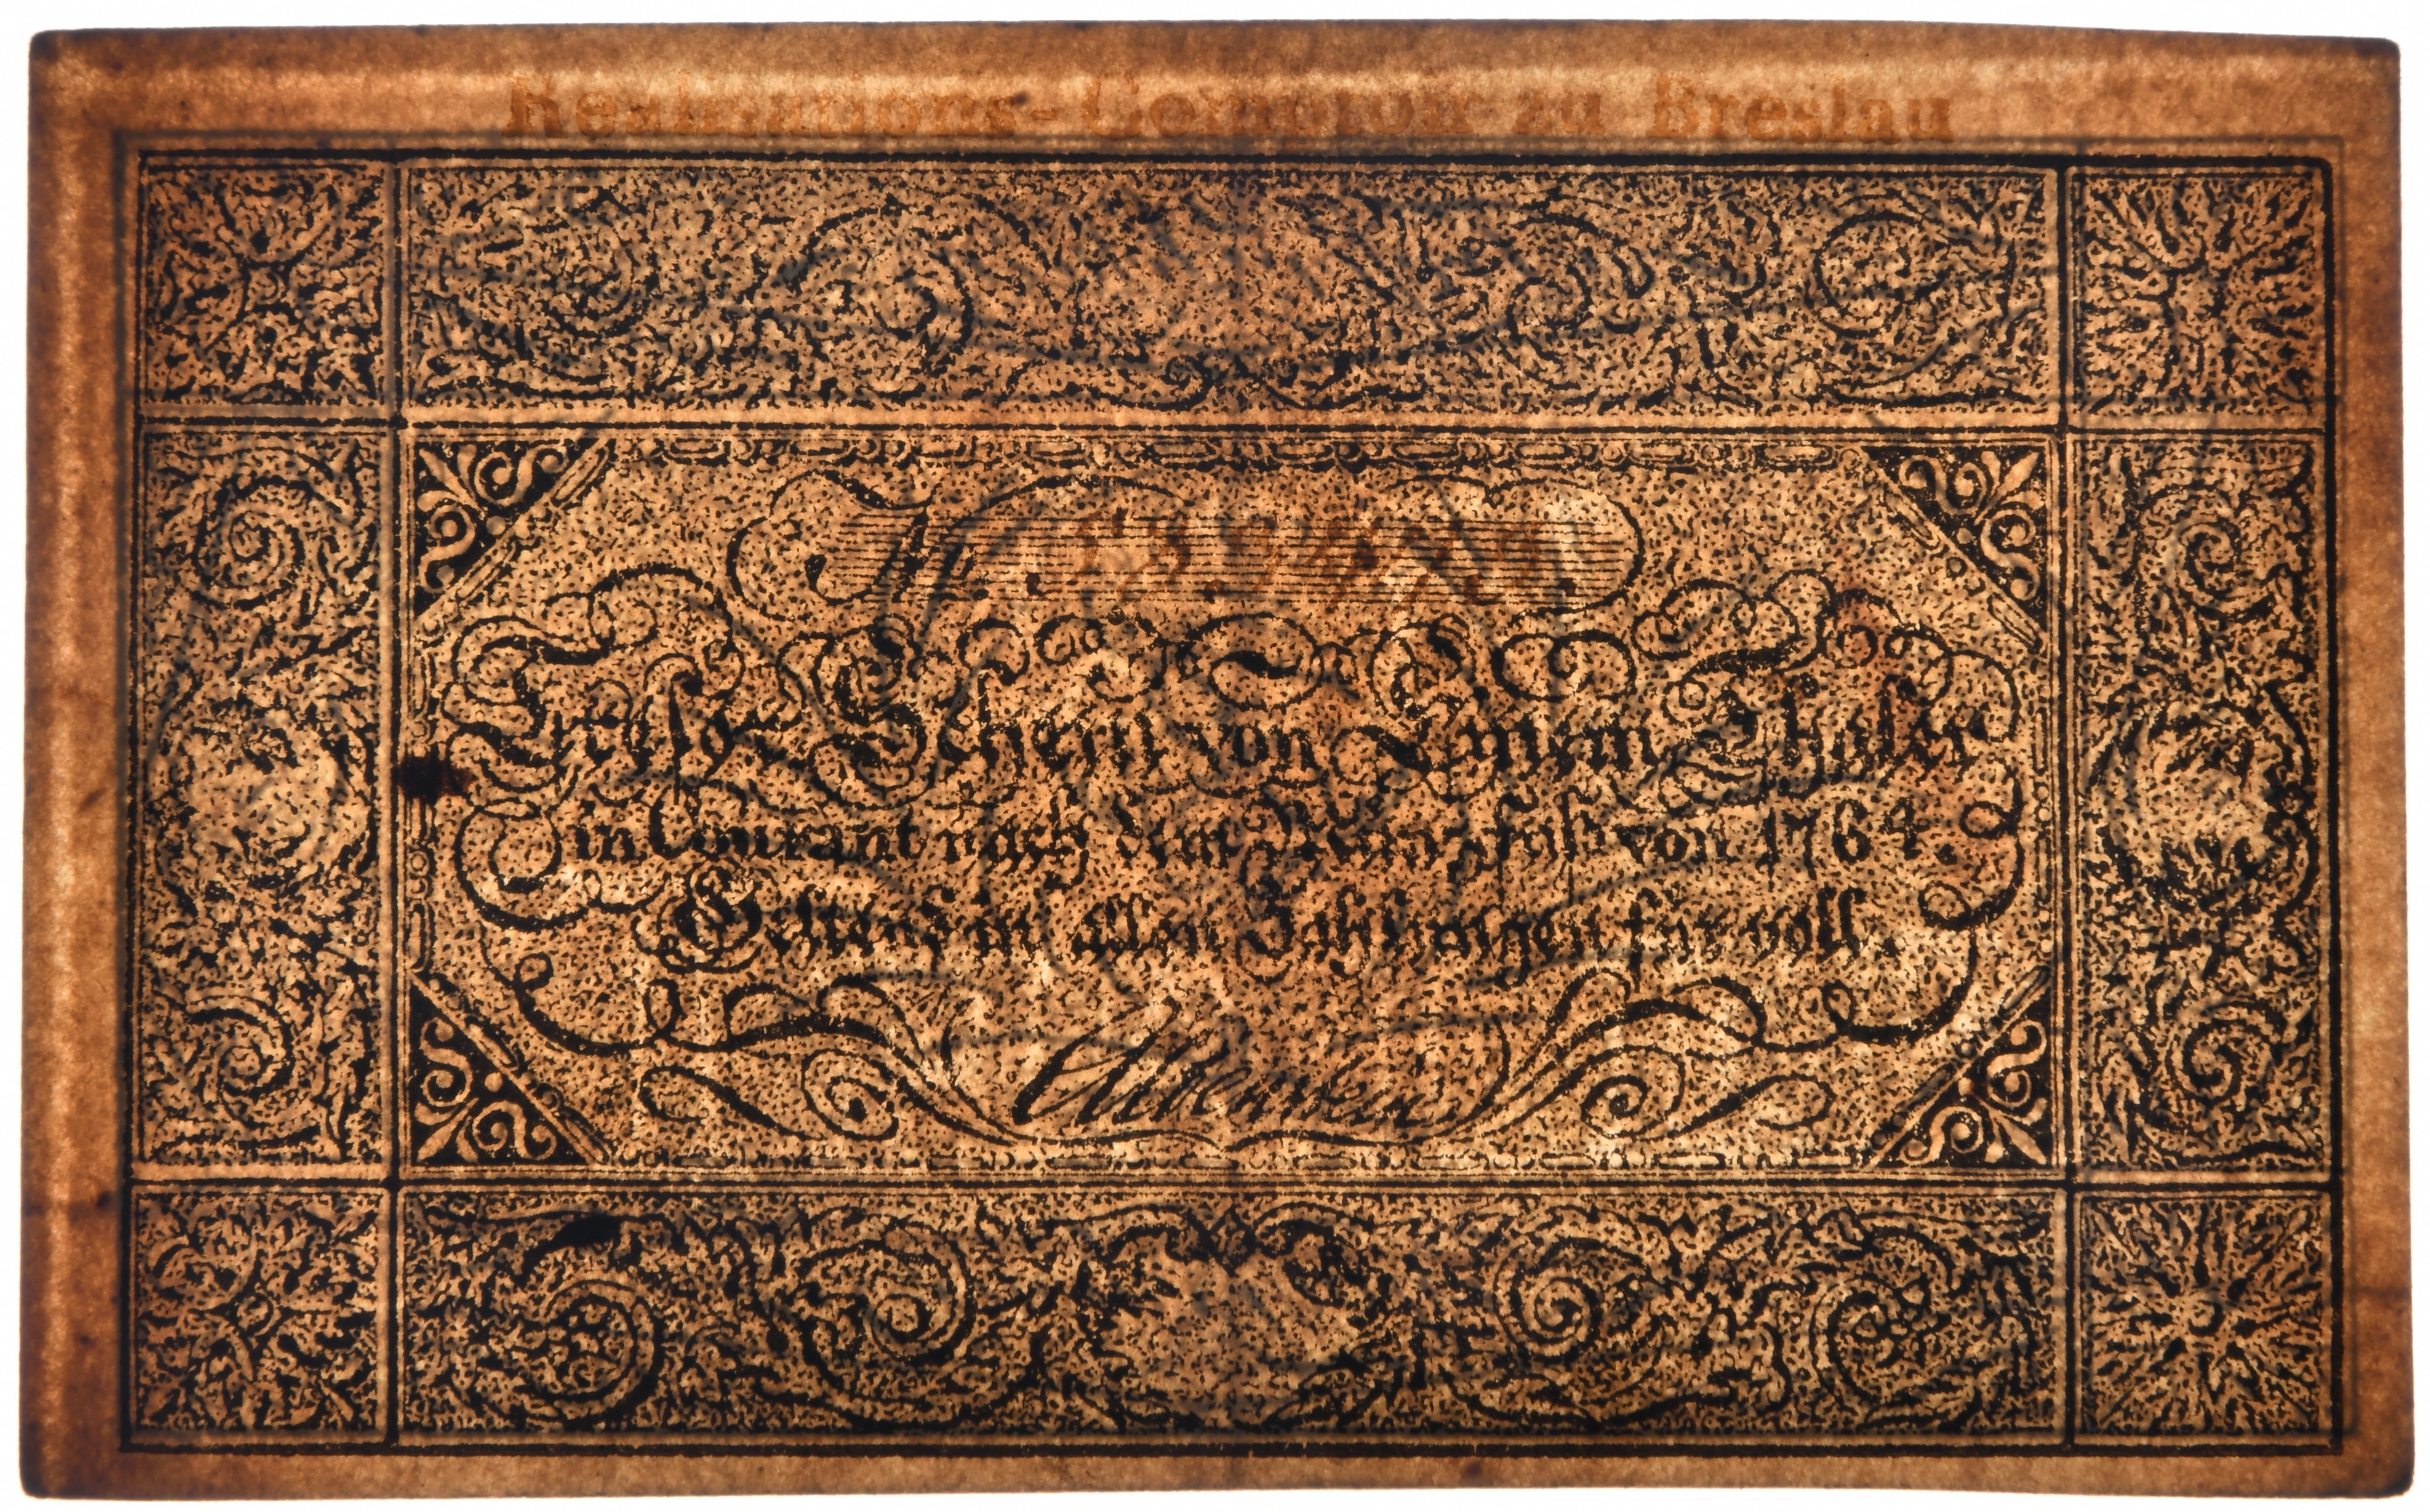 Realisations-Comptoir zu Breslau
Tresor-Schein von Einem Thaler
in Courant nach dem Münzfuß von 1764
Geltend in allen Zahlungen für voll.